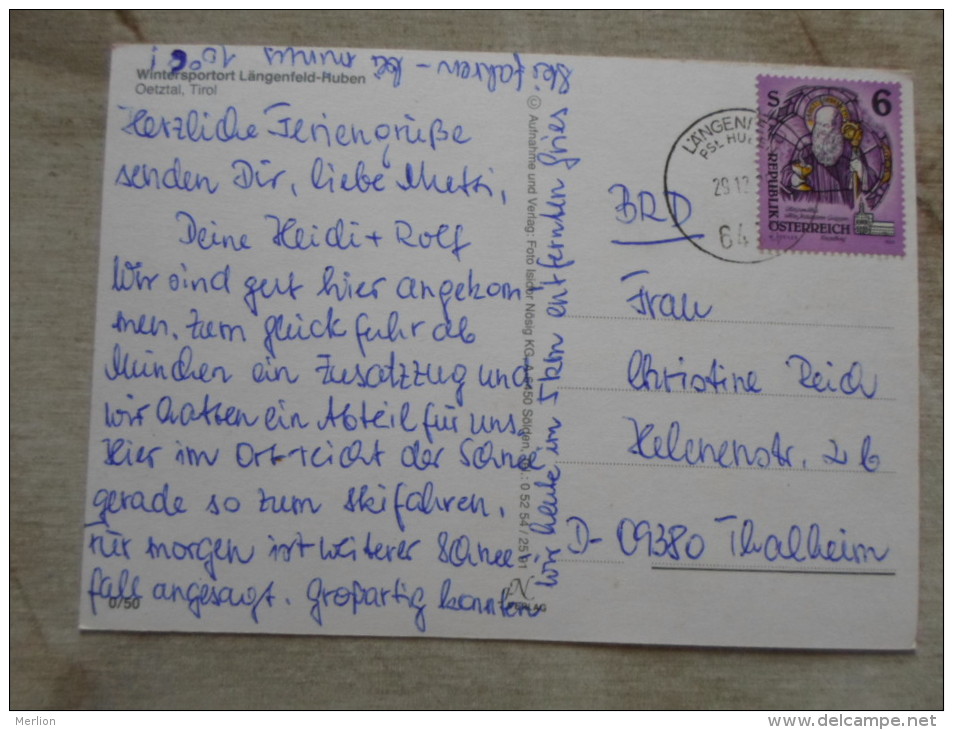 Wintersportort Längenfeld-Huben
Oetztal, Tirol
Herzliche Feriengrüße
senden Dir, liebe Mutti,
Deine Heidi + Rolf
Wir sind gut hier angekom-
men. Zum Glück fuhr ab
München ein Zusatzzug und
wir hatten ein Abteil für uns.
Hier im Ort reicht der Schnee
gerade so zum Skifahren,
für morgen ist weiterer Schnee-
fall angesagt. Großartig konnten
wir heute im 5 km entfernten Gries
Skifahren - bei minus 10°C!
© Aufnahme und Verlag: Foto Isidor Nösig KG, A-6450 Sölden, Tel.: 0 52 54 / 25 01
N
VERLAG
0/50
LÄNGENF
PSL HU
29.12.
64
S 6
REPUBLIK
ÖSTERREICH
BRD
Frau
Christine Reich
Helenenstr. 2b
D- 09380 Thalheim
Merlion
http://www.delcampe.net